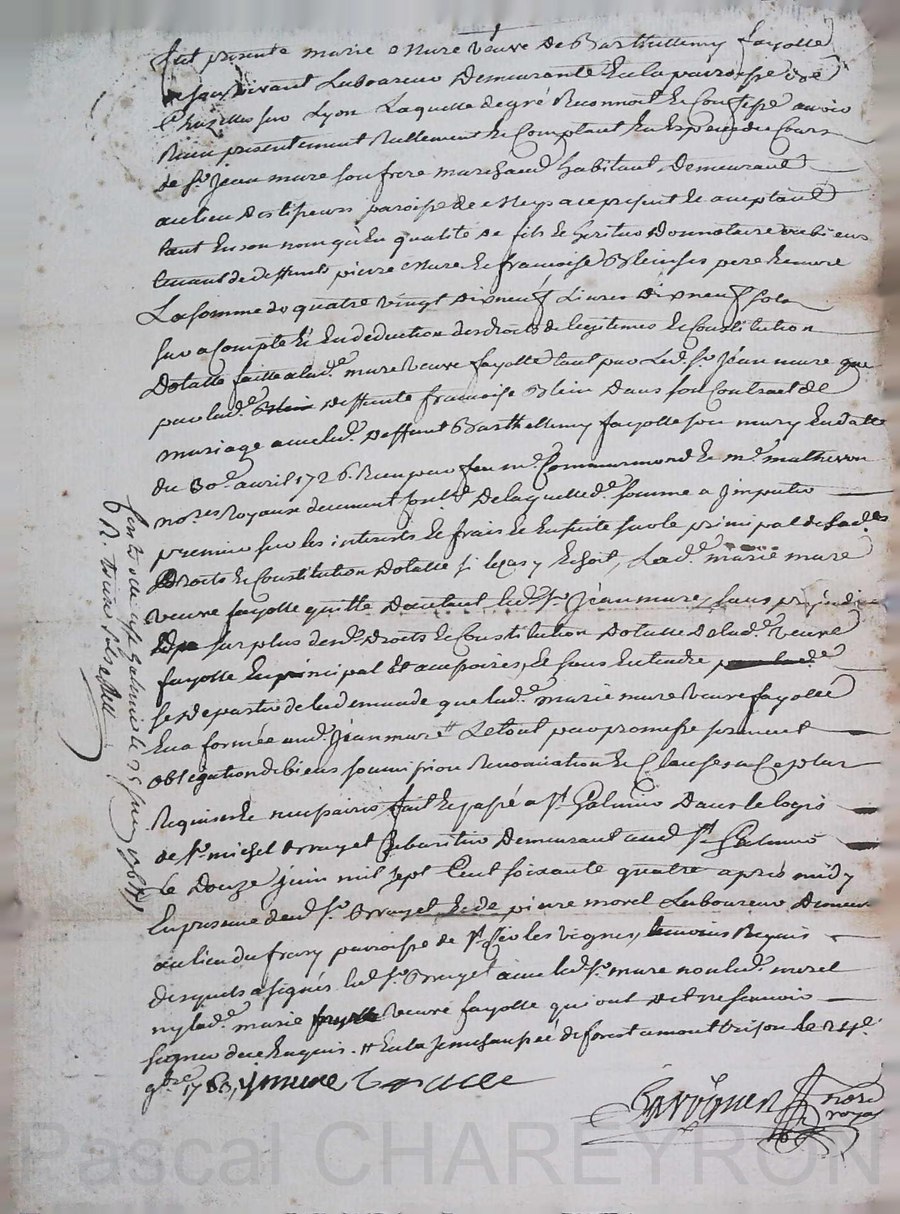 fut presente marie mure veuve de Barthellemy fayolle
vivant Laboureur Demeurante en la parroisse de
Chazelles sur Lyon Laquelle de gré Reconnoit et Confesse avoir
Reçu presentement Reellement et Comptant En Especes du Cours
de Sr. Jean mure son frere marchand habitant Demeurant
au lieu paroisse de meys ace present et aceptant
tant En son nom qu'En qualité de fils et heritier
de deffunts pierre mure et francoise Blein ses pere et mere
La somme de quatre vingt Dix neuf Livres Dix neuf sols
sur et a Compte Et En deduction des droits de legitimes et Constitution
Dotalle faitte a lad.e mure veuve fayolle tant par Led. Sr. Jean mure que
par lad.e deffunte francoise Blein Dans son Contract de
mariage avec led. Deffunt Barthellemy fayolle son mary En datte
du 30e. avril 1726. Reçu par feu me. Commarmond et me. matheron
no.res Royaux De laquelle d.e somme a Imputer
premier sur les interests et frais et Ensuite sur le principal de sesd. es
Droits et Constitution Dotalle si le cas y Echoit, Lad.e marie mure
veuve fayolle quitte D'autant led. Sr. Jean mure, sans prejudice
sur plus desd. Droits et Constitution Dotalle De lad.e veuve
fayolle En principal Et accessoires, Et sans Entendre
se departir de la demande que lad.e marie mure veuve fayolle
En a formée aud. Jean mure # Le tout par promesse serment
obligation de biens soumission Renonciation et Clauses
Requises et necessaires fait et passé a St. Galmier Dans le logis
de Sr. michel Cabaretier Demeurant aud. St. Galmier
le Douze juin mil sept Cent soixante quatre après midy
En presence dud. Sr. et de pierre morel Laboureur Demeurant
au lieu du parroisse de St. Cir les vignes, temoins Requis
desquels a signés led. Sr. avec led. Sr. mure non led. morel
ny lad.e marie veuve fayolle qui ont Dit ne scavoir
signer de ce Enquis. # En la senechaussée de forest a montbrison le 24e.
9bre. 1763, J mure
no.re royal
Controllé a St. Galmier le 25 juin 1764
R. treize sols
Pascal CHAREYRON